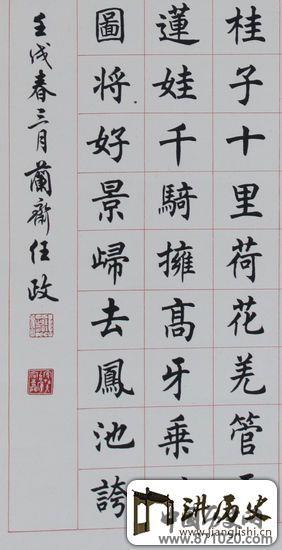 桂子十里荷花羌管
蓮娃千騎擁高牙乗
圖将好景歸去鳳池誇
壬戌春三月蘭齋任政
讲历史
www.jianglishi.cn
www.871020.com